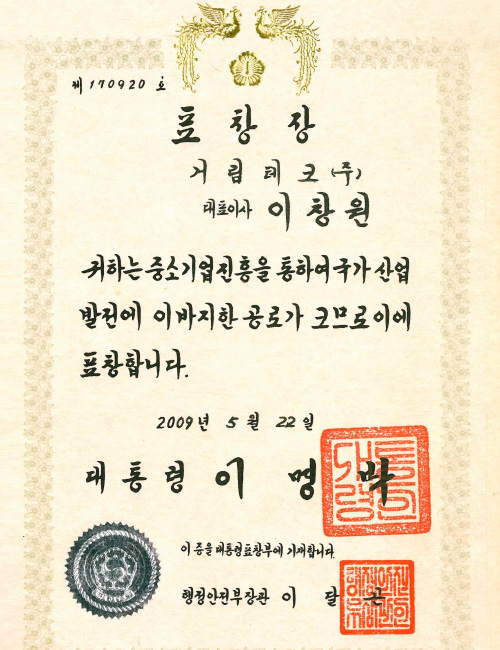 제 170920 호
표창장
거림테크(주)
대표이사 이창원
귀하는 중소기업진흥을 통하여 국가 산업
발전에 이바지한 공로가 크므로 이에
표창합니다.
2009년 5월 22일
대통령 이명박
이 증을 대통령표창부에 기재합니다.
행정안전부장관 이달곤